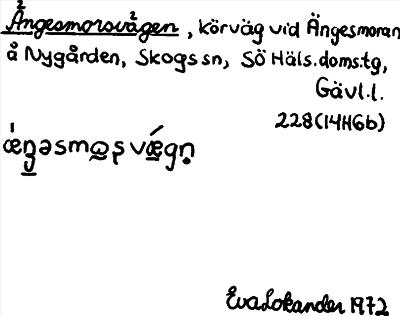 Ängesmorsvägen, körväg vid Ängesmoran
å Nygården, Skogs sn, Sö Häls. doms.tg,
Gävl.l.
228(14H6b)
Eva Lokander 1972